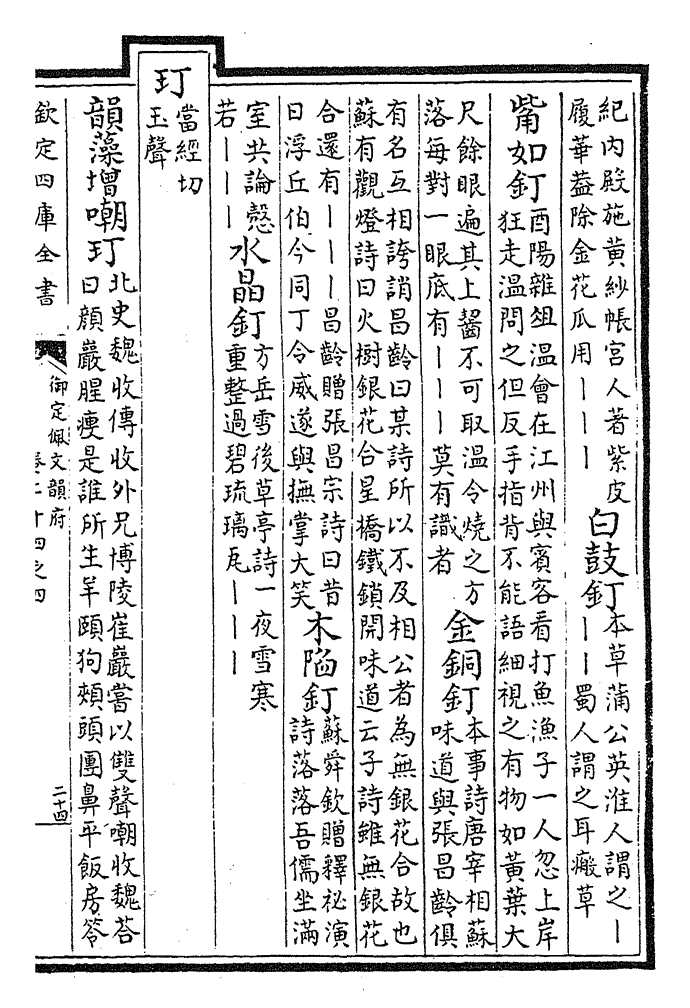 紀内殿施黄紗帳宫人著紫皮
履華葢除金花瓜用｜｜｜
白鼓釘
本草蒲公英淮人謂之｜
｜｜蜀人謂之耳瘢草
觜如釘
酉陽雜俎温會在江州與賓客看打魚漁子一人忽上岸
狂走温問之但反手指背不能語細視之有物如黄葉大
尺餘眼遍其上齧不可取温令燒之方
落每對一眼底有｜｜｜莫有識者
金銅釘
本事詩唐宰相蘇
味道與張昌齡俱
有名互相誇誚昌齡曰某詩所以不及相公者為無銀花合故也
蘇有觀燈詩曰火樹銀花合星橋鐵鎖開味道云子詩雖無銀花
合還有｜｜｜昌齡贈張昌宗詩曰昔
日浮丘伯今同丁令威遂與撫掌大笑
木陷釘
蘇舜欽贈釋祕演
詩落落吾儒坐滿
室共論慤
若｜｜｜
水晶釘
方岳雪後草亭詩一夜雪寒
重整過碧琉璃瓦｜｜｜
玎
當經切
玉聲
韻藻增嘲玎
北史魏收傳收外兄博陵崔巖嘗以雙聲嘲收魏荅
曰顔巖腥瘦是誰所生羊頤狗頰頭團鼻平飯房笭
欽定四庫全書
御定佩文韻府
卷二十四之四
二十四